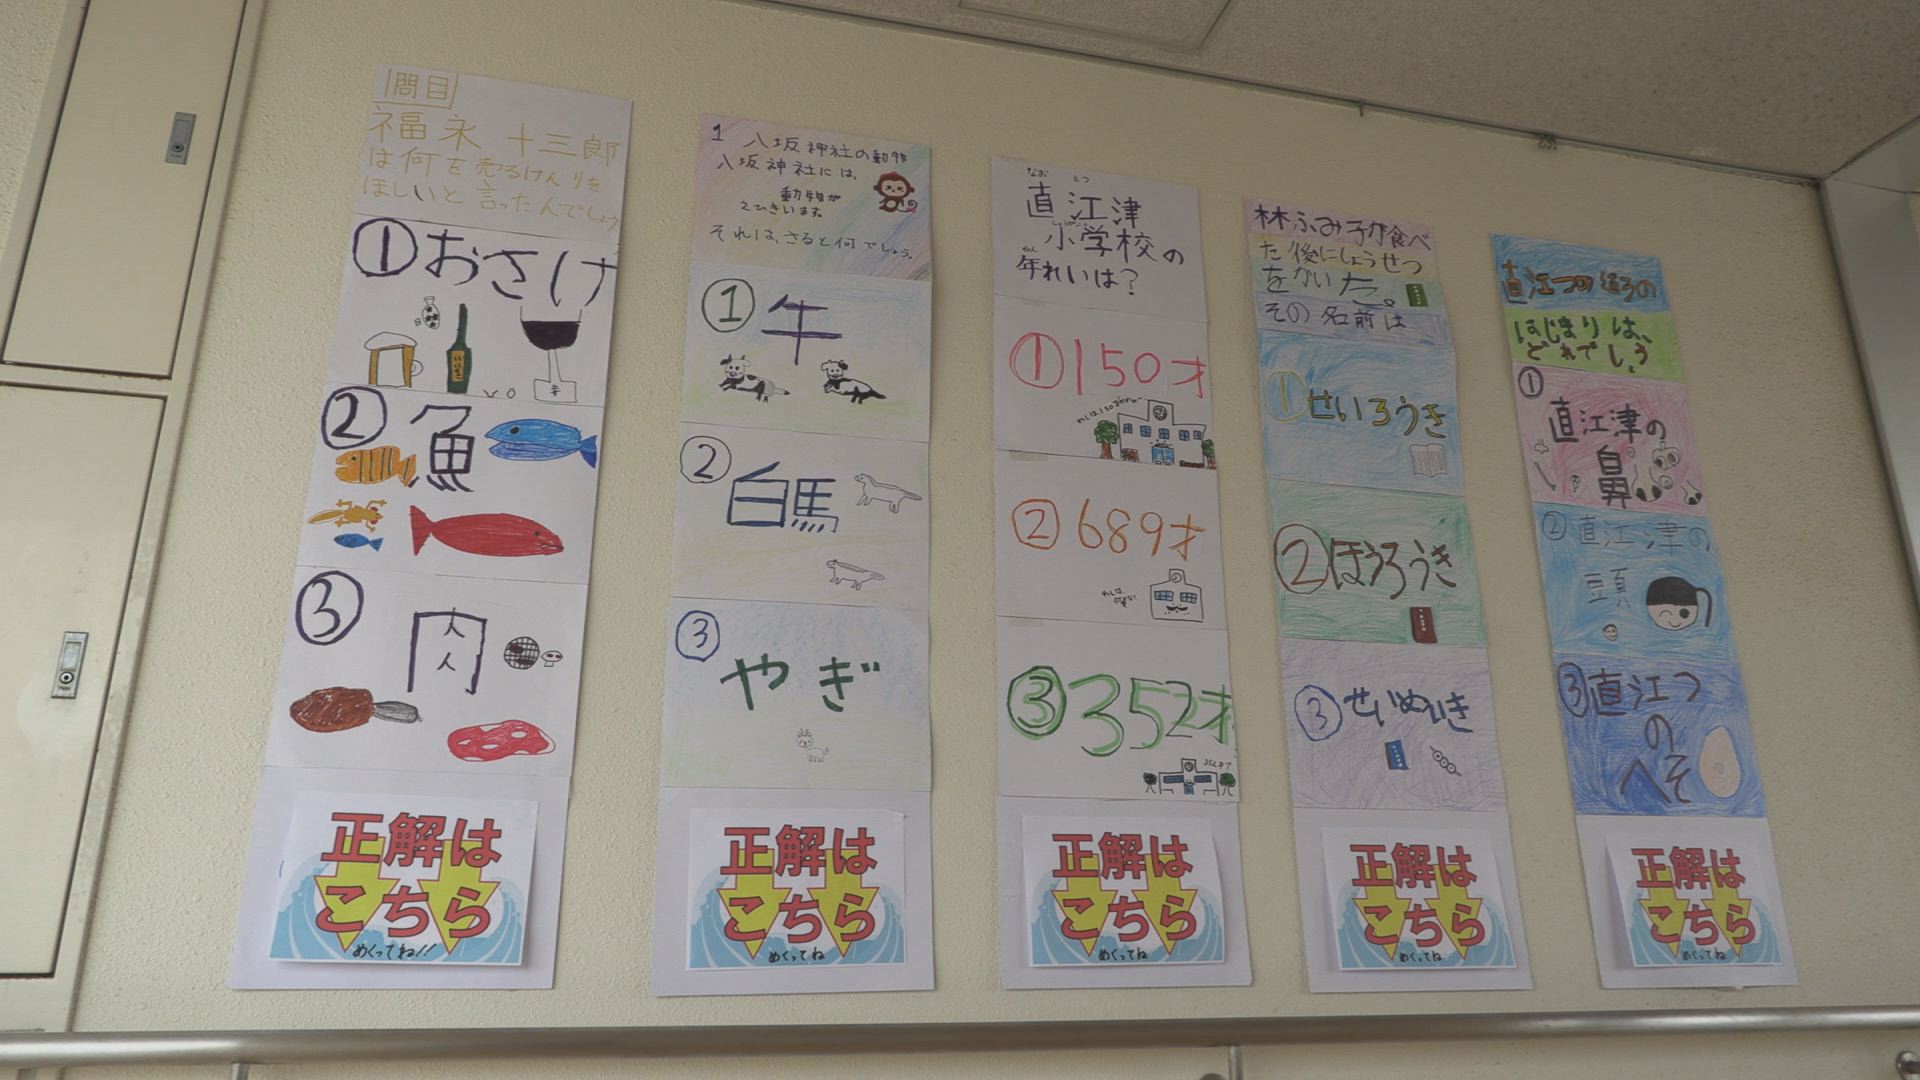 1問目
福永十三郎
は何を売るけんりを
ほしいと言ったんでしょう
①おさけ
②魚
③肉
正解は
こちら
めくってね!!
1 八坂神社の動物
八坂神社には、
動物が
2ひきいます。
それは、さると何でしょう。
①牛
②白馬
③やぎ
正解は
こちら
めくってね
なおえつ
直江津
しょうがっこう
小学校の
ねん
年れいは?
①150才
②689才
わしは
③352才
352才?
正解は
こちら
めくってね
林ふみ子が食べ
た後にしょうせつ
をかいた。
その名前は
①せいろうき
②ほうろうき
③せいめいき
正解は
こちら
めくってね
直江つの道の
はじまりは、
どれでしょう
①
直江津の
鼻
②直江津の
頭
③直江つ
の
へそ
正解は
こちら
めくってね